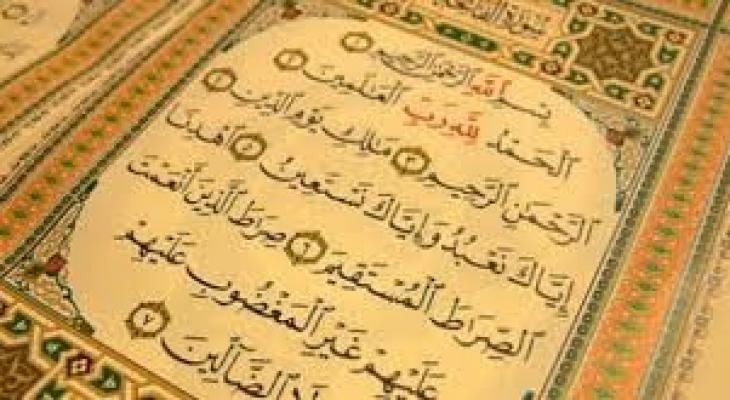 سُورَةُ الفَاتِحَةِ
بِسْمِ ٱللَّهِ ٱلرَّحْمَٰنِ ٱلرَّحِيمِ ١
ٱلْحَمْدُ لِلَّهِ رَبِّ ٱلْعَٰلَمِينَ ٢
ٱلرَّحْمَٰنِ ٱلرَّحِيمِ ٣ مَٰلِكِ يَوْمِ ٱلدِّينِ ٤
إِيَّاكَ نَعْبُدُ وَإِيَّاكَ نَسْتَعِينُ ٥ ٱهْدِنَا
ٱلصِّرَٰطَ ٱلْمُسْتَقِيمَ ٦ صِرَٰطَ ٱلَّذِينَ أَنْعَمْتَ
عَلَيْهِمْ غَيْرِ ٱلْمَغْضُوبِ عَلَيْهِمْ
ٱلضَّآلِّينَ ٧